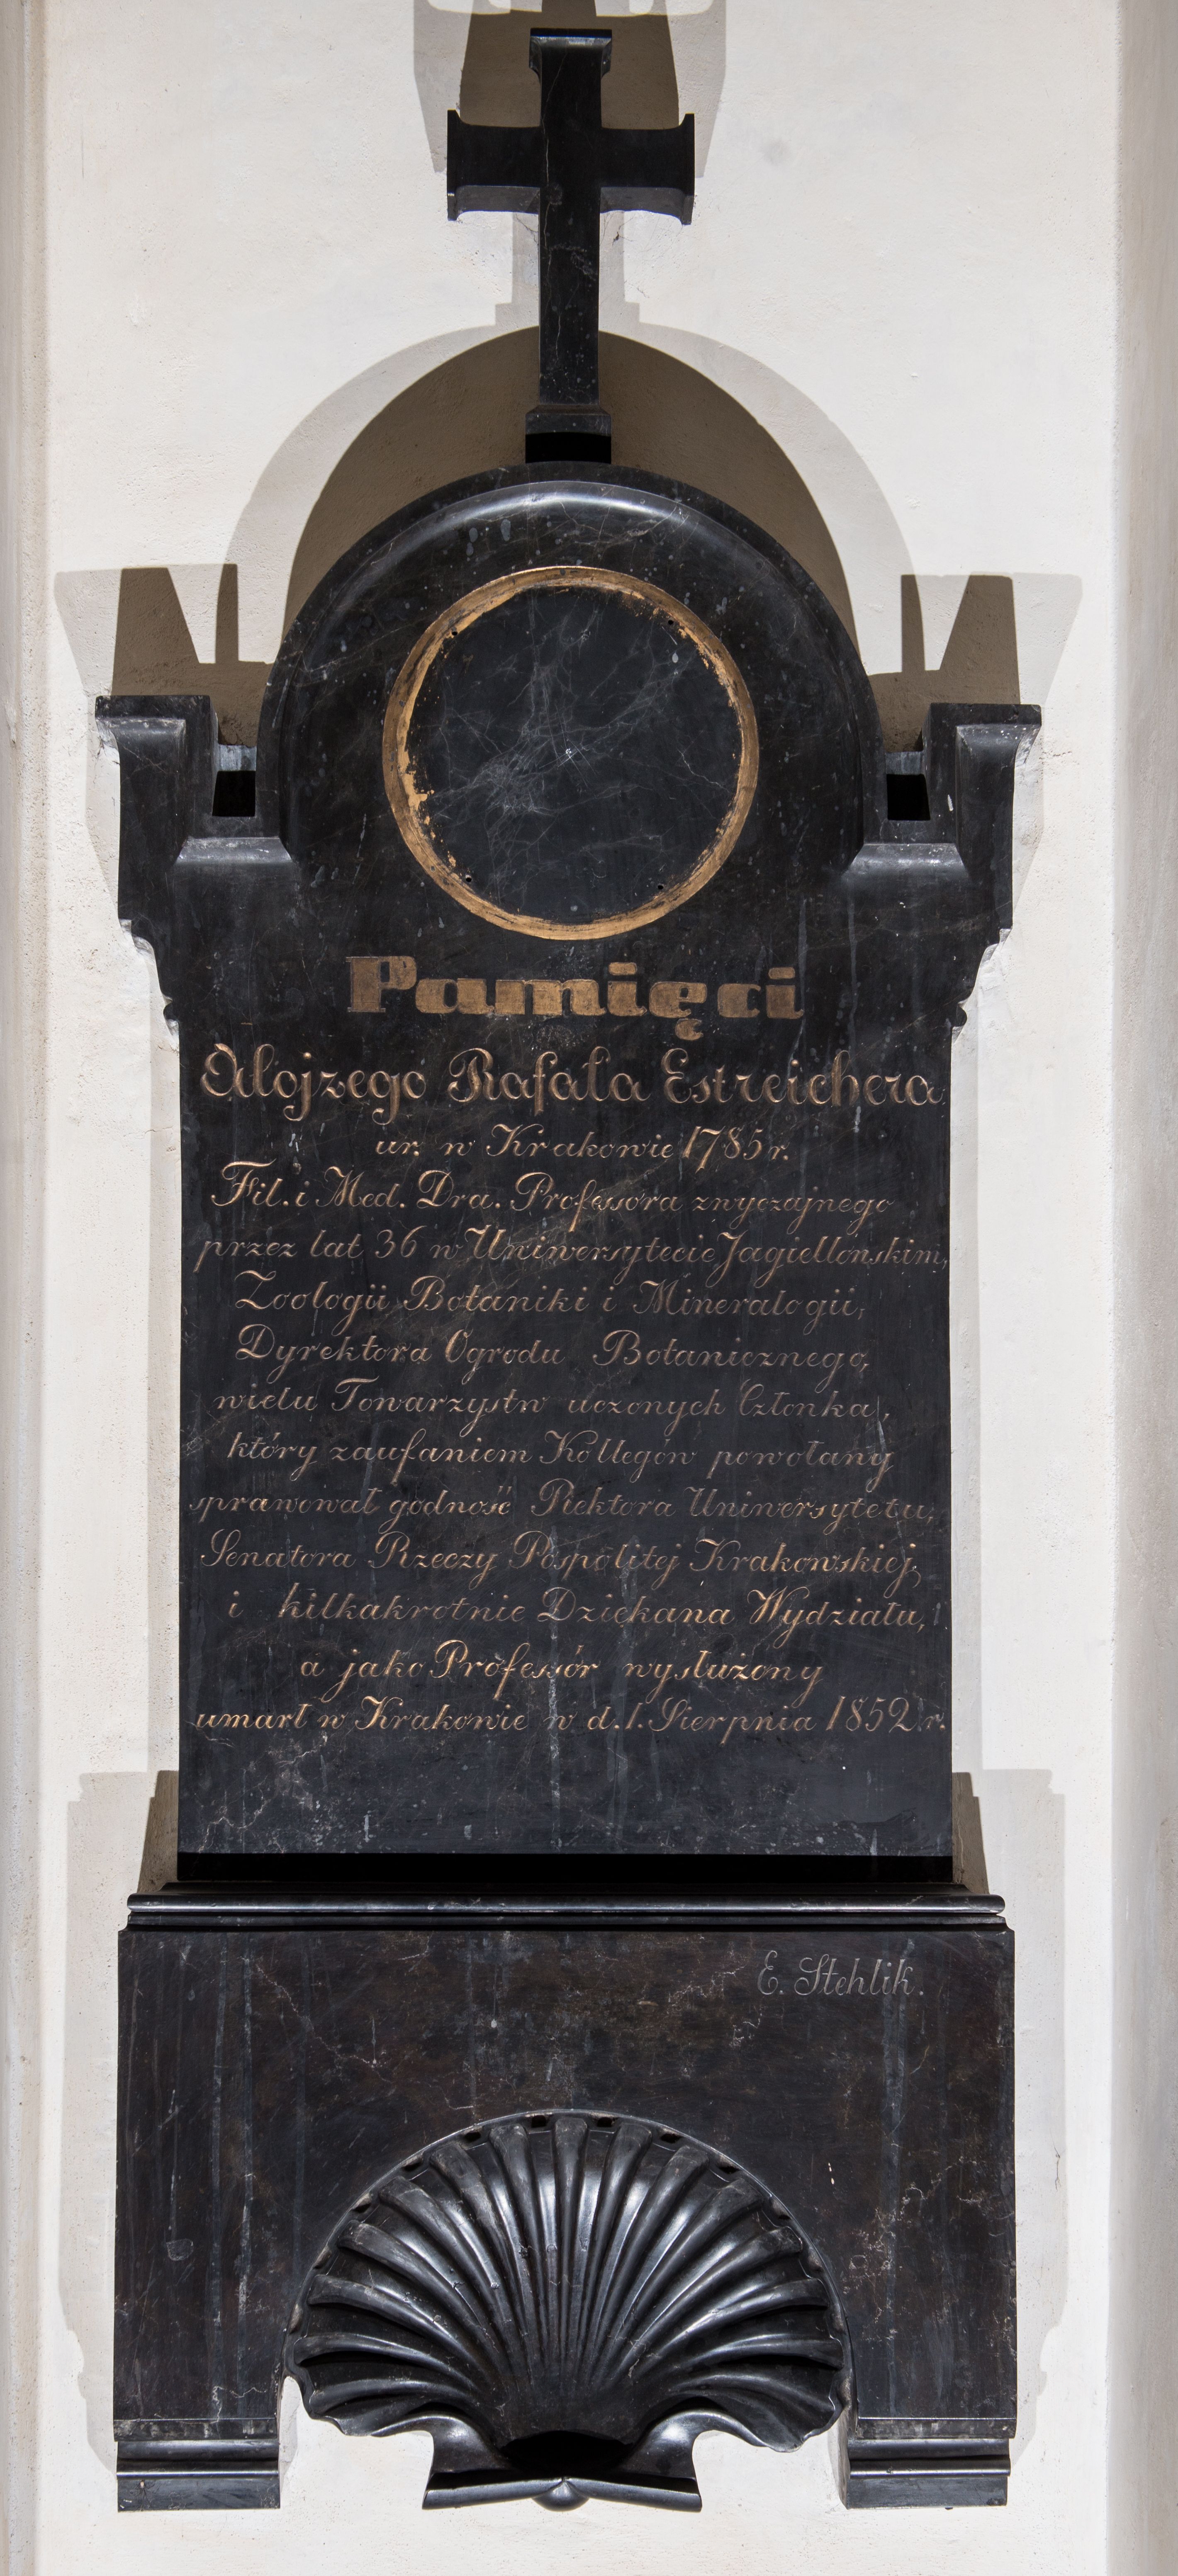 Pamięci
Alojzego Rafała Estreichera
ur. w Krakowie 1785 r.
Fil. i Med. Dra. Professora zwyczajnego
przez lat 36 w Uniwersytecie Jagiellońskim,
Zoologii Botaniki i Mineralogii,
Dyrektora Ogrodu Botanicznego,
wielu Towarzystw uczonych Członka,
który zaufaniem Kollegów powołany
sprawował godność Rektora Uniwersytetu,
Senatora Rzeczy Pospolitej Krakowskiej,
i kilkakrotnie Dziekana Wydziału,
a jako Professór wysłużony
umarł w Krakowie w d. 1. Sierpnia 1852 r.
E. Stehlik.